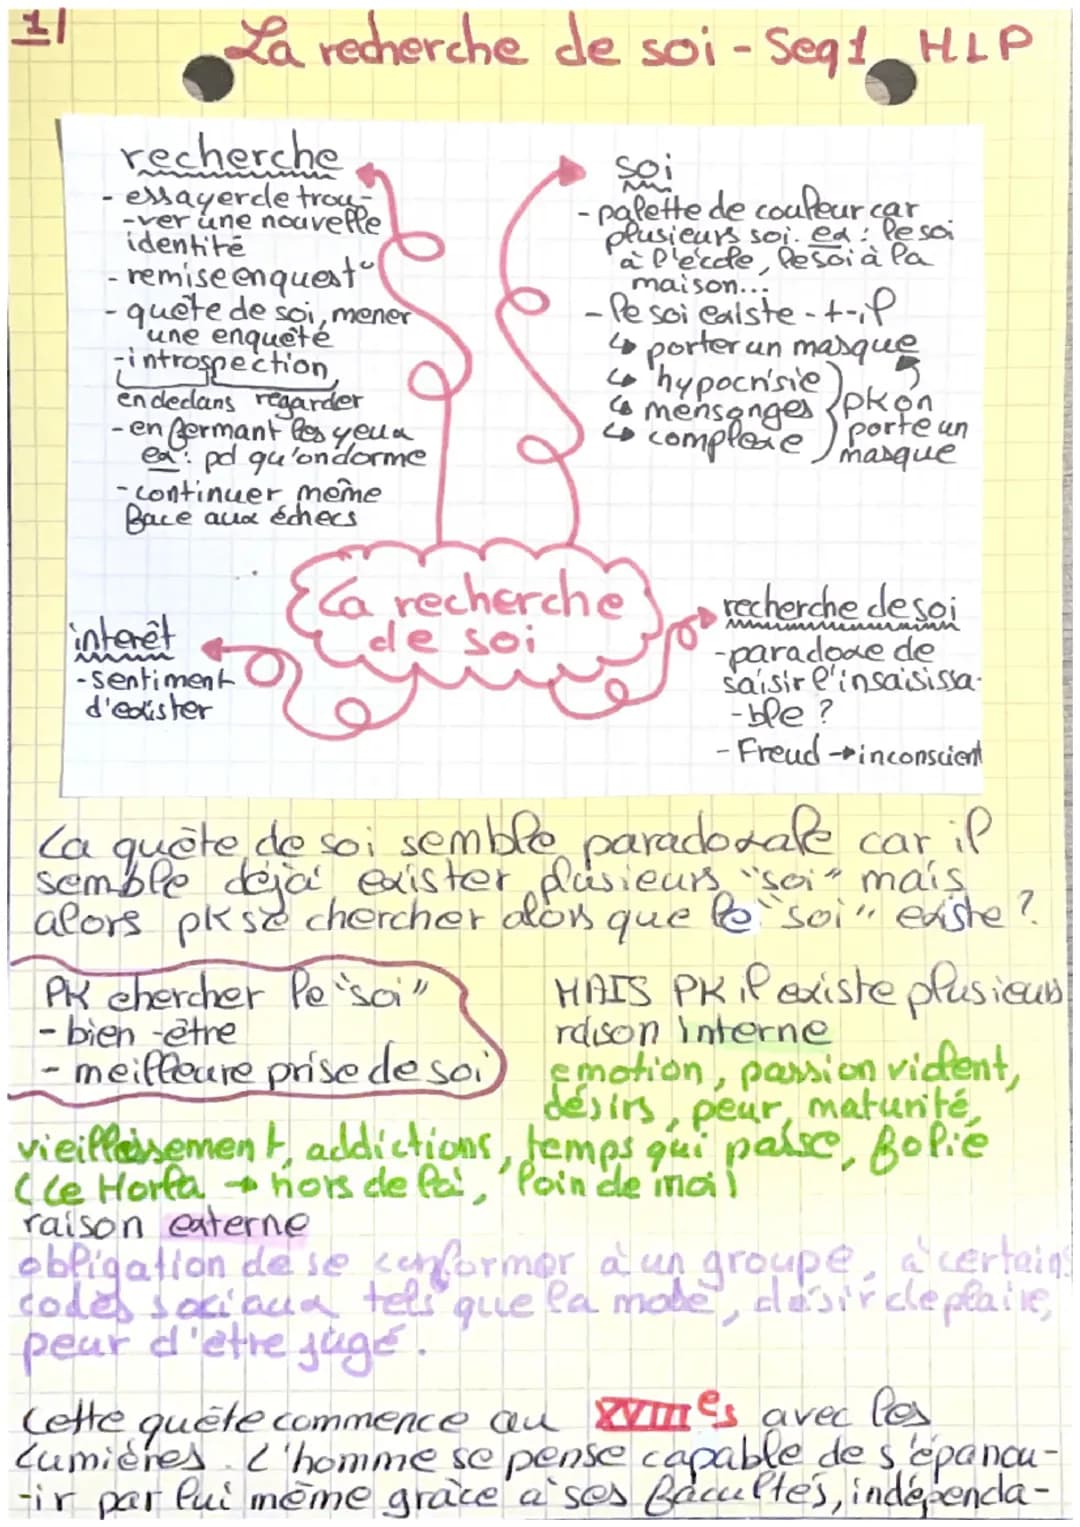 1/
La recherche de soi - Seq1 HLP
recherche
- essayer de trou-
-ver une nouvelle
identité
- remise en quest°
- quête de soi, mener
une enquête
- introspection
en dedans regarder
- en fermant les yeux
ex : pd qu'on dorme
- continuer même
face aux échecs
soi
- palette de couleur car
plusieurs soi. ex : le soi
à l'école, le soi à la
maison...
- le soi existe-t-il
↳ porter un masque
↳ hypocrisie
↳ mensonges
↳ complexe
pk on
porte un
masque
La recherche
de soi
interêt
- sentiment
d'exister
recherche de soi
- paradoxe de
saisir l'insaisissa-
-ble ?
- Freud → inconscient
La quête de soi semble paradoxale car il
semble déjà exister plusieurs "soi" mais
alors pk se chercher alors que le "soi" existe ?
PK chercher le "soi"
- bien -être
- meilleure prise de soi
MAIS PK il existe plusieurs
raison interne
emotion, passion violent,
désirs, peur, maturité,
vieillissement, addictions, temps qui passe, folie
(Le Horla → hors de foi, loin de moi)
raison externe
obligation de se conformer à un groupe, à certains
codes sociaux tels que la mode, désir de plaire,
peur d'être jugé.
Cette quête commence au XVIIIes avec les
Lumières. L'homme se pense capable de s'épanou-
-ir par lui même grâce à ses facultés, indépenda-